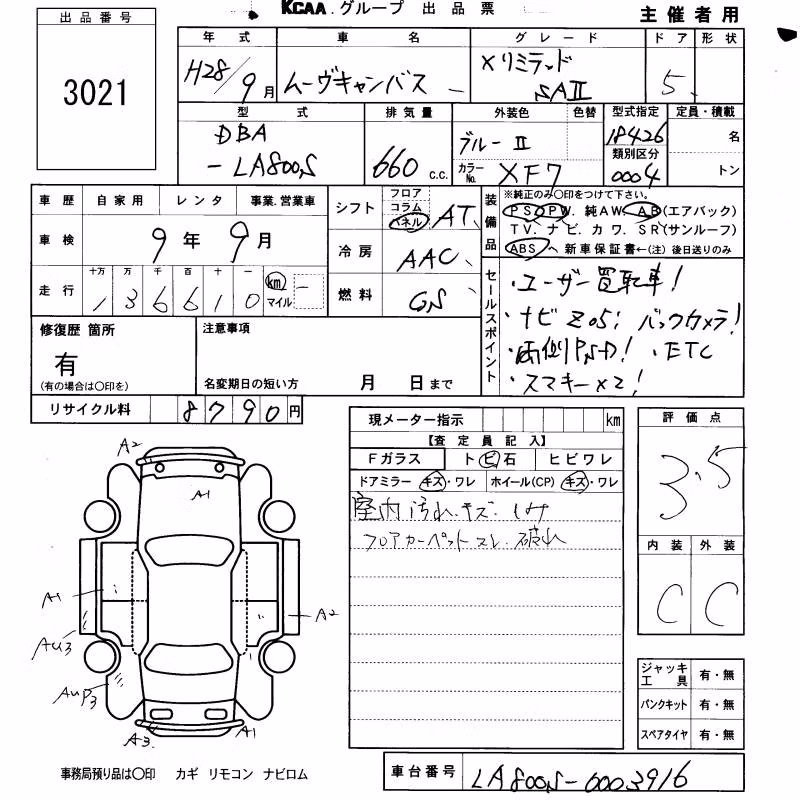 KCAA.グループ 出品票
主催者用
出品番号
3021
年式 車名 グレード ドア 形状
H28/9月 ムーヴキャンバス XリミテッドSAⅡ 5
型式 排気量 外装色 色替 型式指定 定員・積載
DBA-LA800S 660 c.c. ブルーⅡ 18426 名
カラーNo. XF7 類別区分 0004 トン
車歴 自家用 レンタ 事業.営業車
車検 9年9月
走行 十万 万 千 百 十 一 km マイル
136610
シフト フロア コラム パネル AT
冷房 AAC
燃料 GS
装備品 ※純正のみ〇印をつけて下さい。
PS, PW, 純AW, AB(エアバック)
TV. ナビ. カワ. SR(サンルーフ)
ABS 新車保証書←(注) 後日送りのみ
セールスポイント
・ユーザー買取車!
・ナビ Z05! バックカメラ!
・両側PSD! ・ETC
・スマキー×2!
修復歴 箇所
有
(有の場合は〇印を)
注意事項
名変期日の短い方 月 日まで
リサイクル料 8790円
現メーター指示 km
【査定員記入】
Fガラス トビ石 ヒビワレ
ドアミラー キズ・ワレ ホイール(CP) キズ・ワレ
室内汚れ.キズ.シミ
フロアカーペットスレ.破れ
評価点
3.5
内装 外装
C C
A2
A1
A1
A2
AU3
AUP3
A3
A1
ジャッキ工具 有・無
パンクキット 有・無
スペアタイヤ 有・無
事務局預り品は〇印 カギ リモコン ナビロム
車台番号 LA800S-0003916